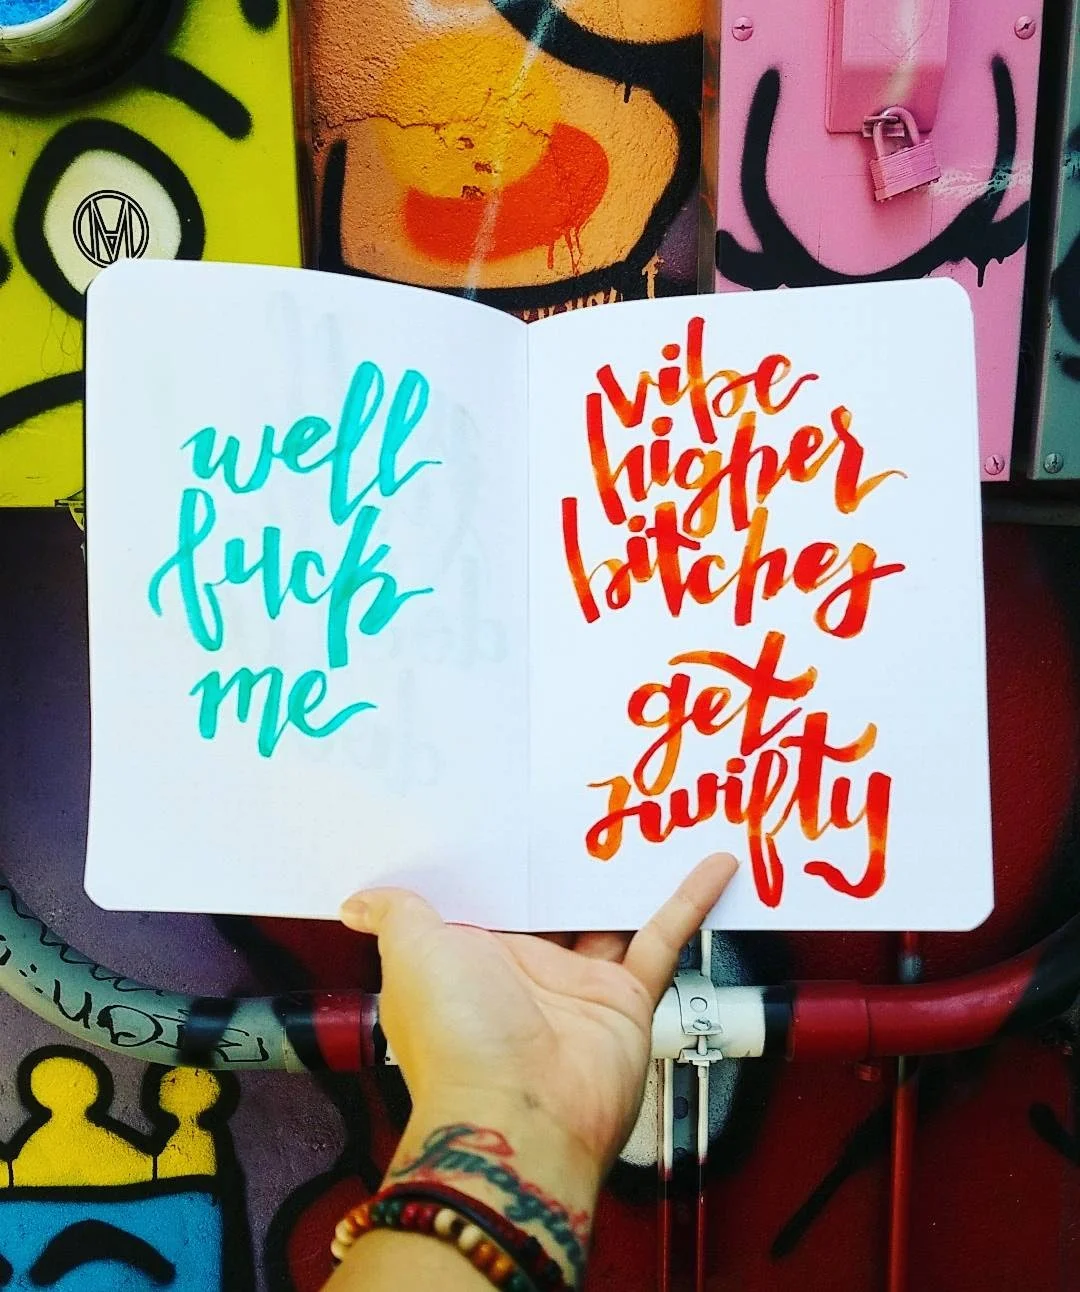 well
fuck
me
vibe
higher
bitches
get
swifty